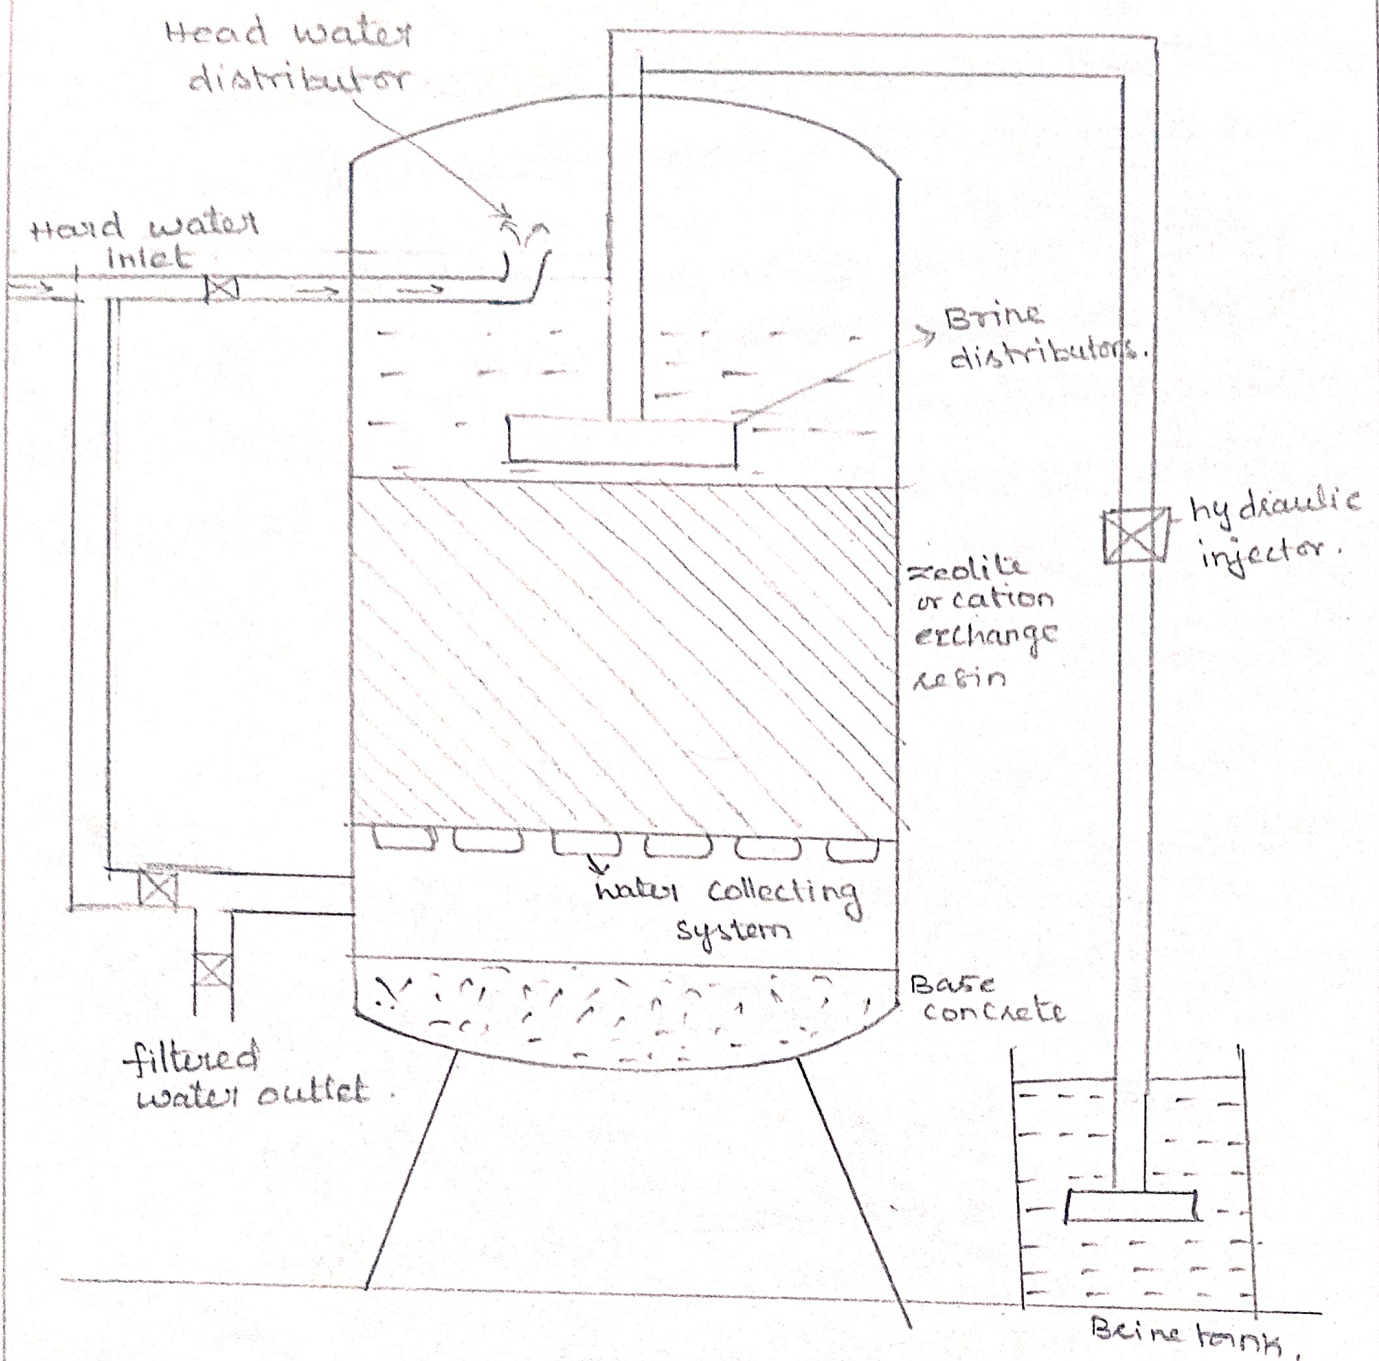 Head water
distributor
Hard water
inlet
Brine
distributors.
hydraulic
injector.
zeolite
or cation
exchange
resin
water collecting
system
Base
concrete
filtered
water outlet.
Brine tank.